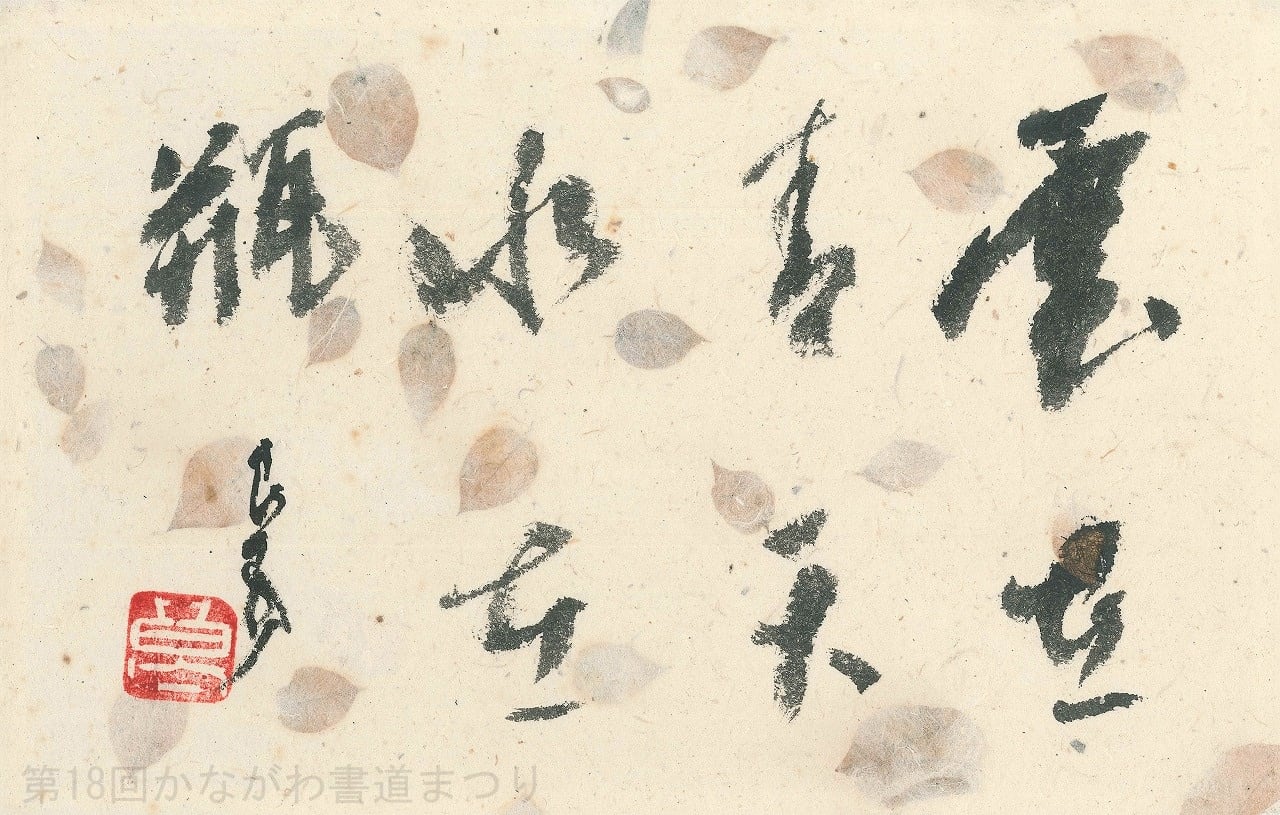 雲在
青天
水在
瓶
第18回かながわ書道まつり